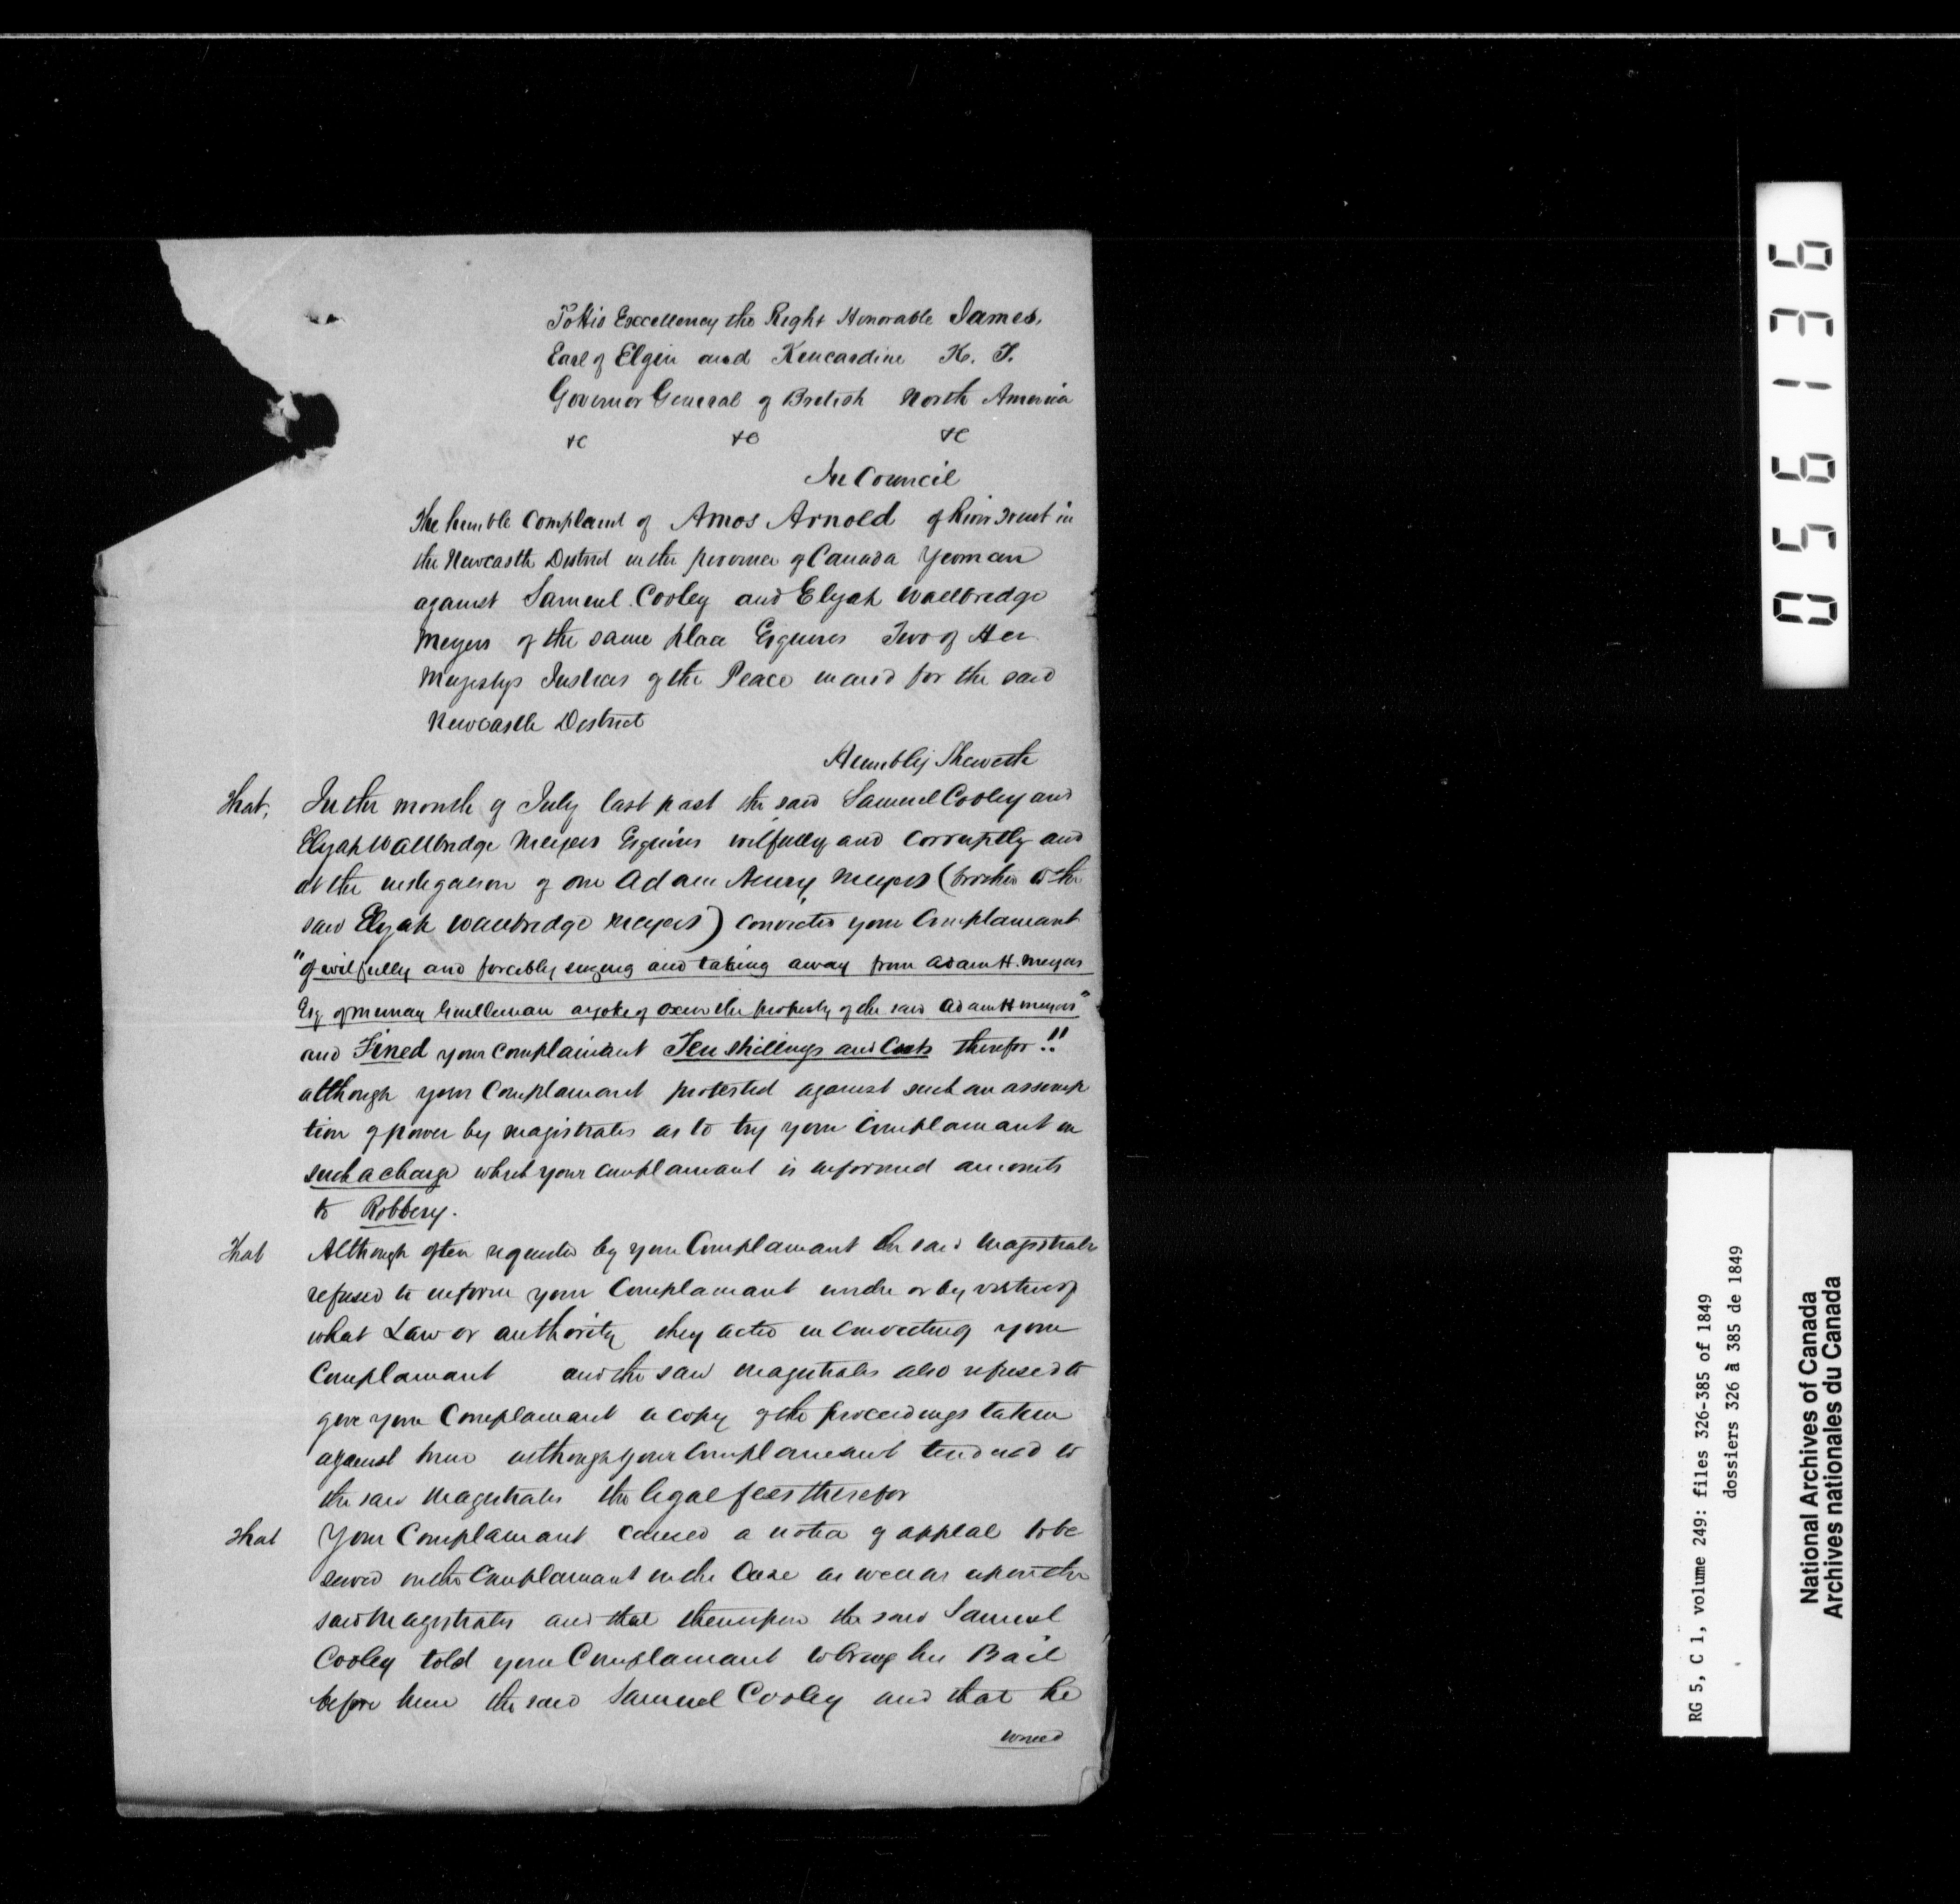 To His Excellency the Right Honorable James,
Earl of Elgin and Kincardine K. T.
Governor General of British North America
&c &c &c
In Council
The humble Complaint of Amos Arnold of River Trent in
the Newcastle District in the province of Canada Yeoman
against Samuel Cooley and Elijah Wallbridge
Meyers of the same place Esquires Two of Her
Majestys Justices of the Peace in and for the said
Newcastle District
Humbly Sheweth
That, In the month of July last past the said Samuel Cooley and
Elijah Wallbridge Meyers Esquires wilfully and Corruptly and
at the instigation of one Adam Henry Meyers (brother to the
said Elijah Wallbridge Meyers) convicted your Complainant
"of wilfully and forcibly seizing and taking away from Adam H. Meyers
Esq of Murray Gentleman a yoke of Oxen the property of the said Adam H Meyers"
and Fined your Complainant Ten Shillings and Costs therefor!!
although your Complainant protested against such an assump
tion of power by Magistrates as to try your Complainant on
such a charge which your Complainant is informed amounts
to Robbery.
That Although often requested by your Complainant the said Magistrates
refused to inform your Complainant under or by virtue of
what Law or authority they acted in convicting your
Complainant and the said Magistrates also refused to
give your Complainant a copy of the proceedings taken
against him although your Complainant tendered to
the said Magistrates the legal fees therefor
That Your Complainant caused a notice of appeal to be
served on the Complainant in the Case as well as upon the
said Magistrates and that thereupon the said Samuel
Cooley told your Complainant to bring his Bail
before him the said Samuel Cooley and that he
would
056136
RG 5, C 1, volume 249: files 326-385 of 1849
dossiers 326 à 385 de 1849
National Archives of Canada
Archives nationales du Canada